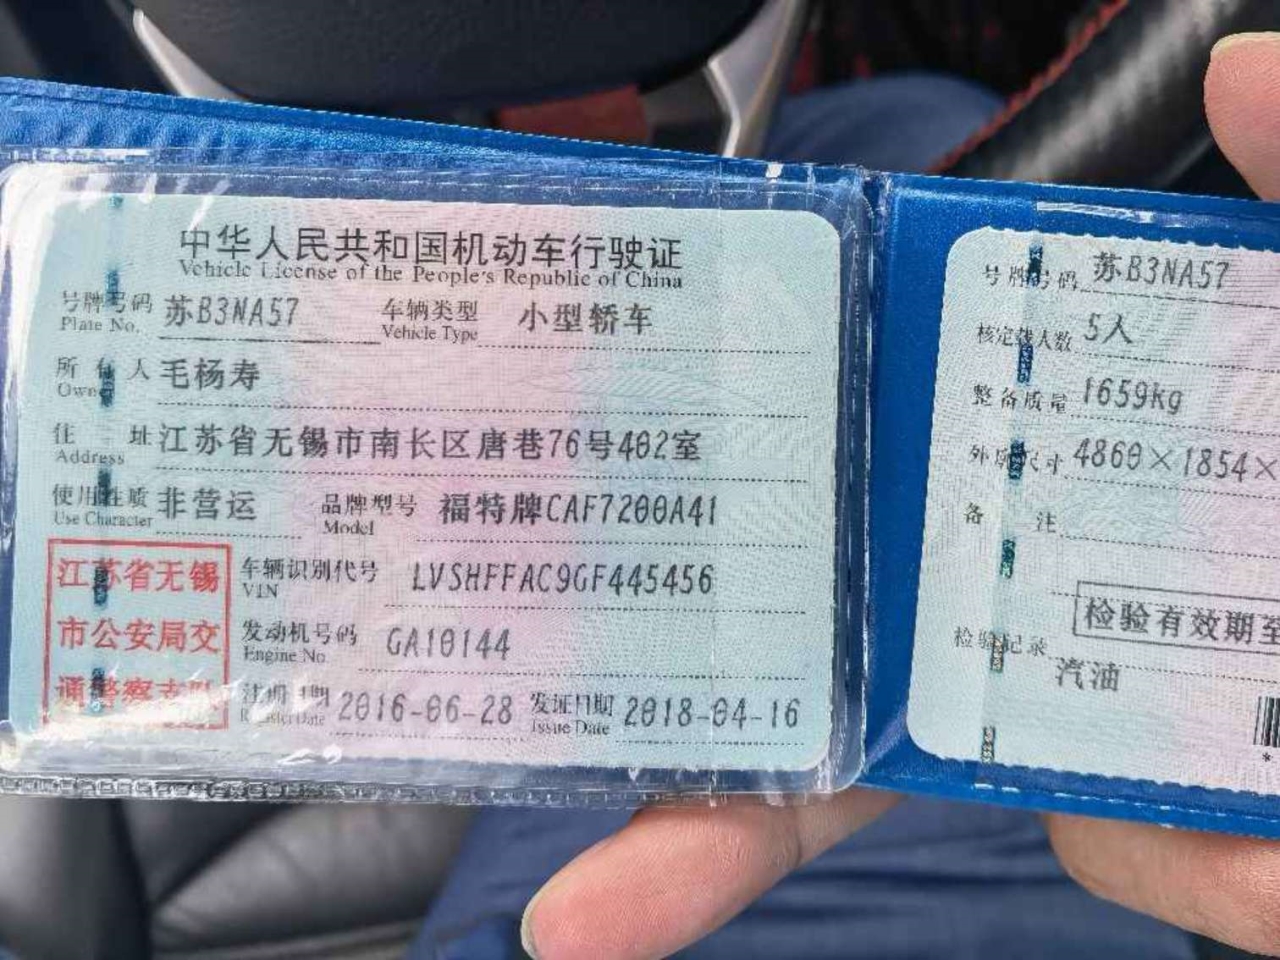 中华人民共和国机动车行驶证
Vehicle License of the People's Republic of China
号牌号码 苏B3NA57 车辆类型 小型轿车
Plate No. Vehicle Type
所有人 毛杨寿
Owner
住址 江苏省无锡市南长区唐巷76号402室
Address
使用性质 非营运 品牌型号 福特牌CAF7200A41
Use Character Model
江苏省无锡
市公安局交
通警察支队
车辆识别代号 LVSHFFAC9GF445456
VIN
发动机号码 GA10144
Engine No.
注册日期 2016-06-28 发证日期 2018-04-16
Register Date Issue Date
号牌号码 苏B3NA57
核定载人数 5人
整备质量 1659kg
外廓尺寸 4860×1854×
备注
检验有效期至
检验记录
汽油
*